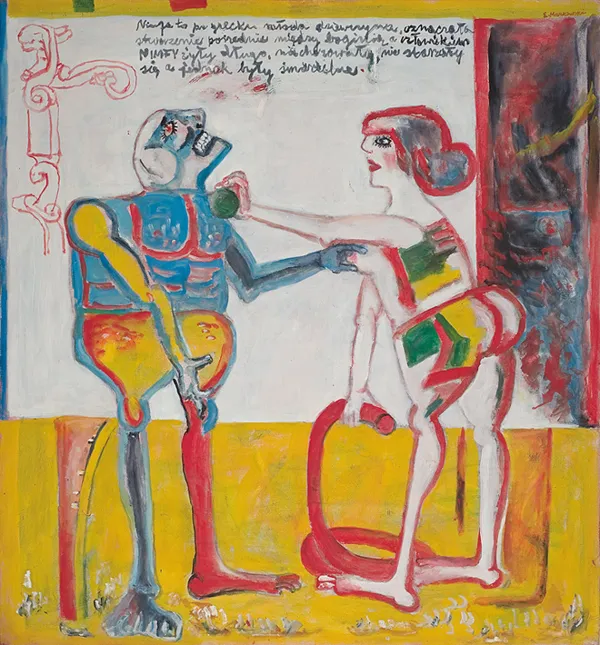 E. Murawski
Nimfa to po grecku młoda dziewczyna, oznaczała
stworzenie pośrednie między boginią, a człowiekiem
NIMFY żyły długo, niechorowały, nie starzały
się a jednak były śmiertelne.